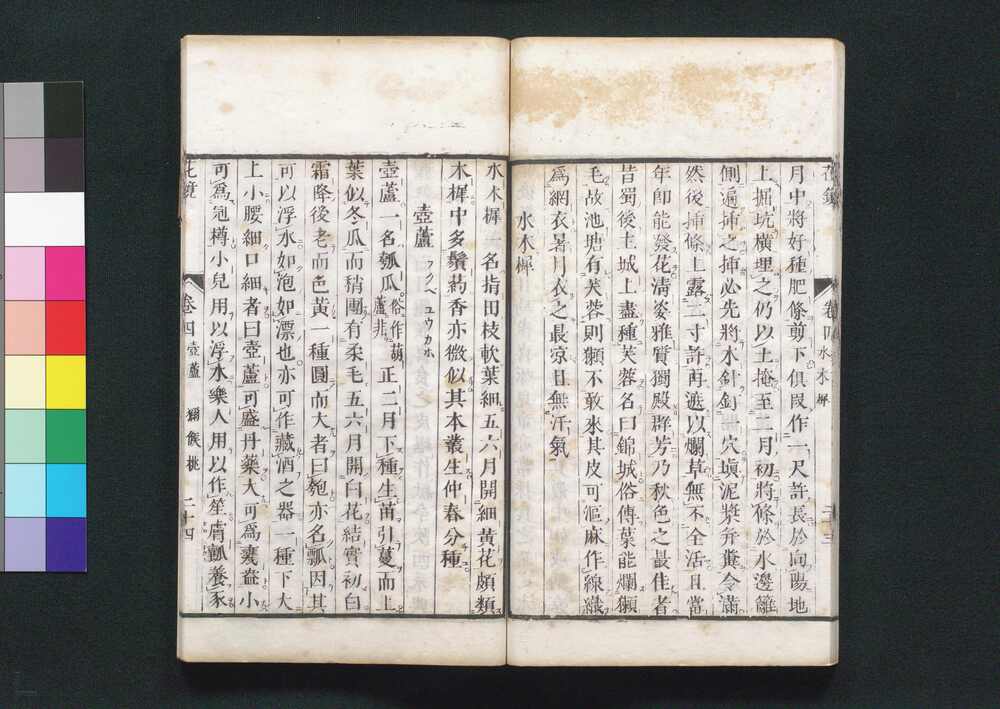 月中將好種肥條剪下俱段作一尺許長於向陽地
上掘坑橫埋之仍以土掩至二月初將條於水邊籬
側遍挿之挿必先將木針釘一穴塡泥漿弁糞令滿
然後挿條上露二寸許再遮以爛草無不全活且當
年卽能發花淸姿雅質獨殿群芳乃秋色之最佳者
昔蜀後主城上盡種芙蓉名曰錦城俗傳葉能爛獺
毛故池塘有芙蓉則獺不敢來其皮可漚麻作線織
爲網衣暑月衣之最凉且無汗氣
水木樨
花鏡 卷四 水木樨 二十三
水木樨一名指田枝軟葉細五六月開細黃花頗類
木樨中多鬚葯香亦微似其本叢生仲春分種
壺蘆 フクベ ユウカホ
壺蘆一名瓠瓜俗作葫蘆非正二月下種生苗引蔓而上
葉似冬瓜而稍團有柔毛五六月開白花結實初白
霜降後老而色黃一種圓而大者曰匏亦名瓢因其
可以浮水如泡如漂也亦可作藏酒之器一種下大
上小腰細口細者曰壺蘆可盛丹藥大可爲甕盎小
可爲瓟樽小兒用以浮水樂人用以作笙膚瓤養豕
花鏡 卷四 壺蘆 獼猴桃 二十四